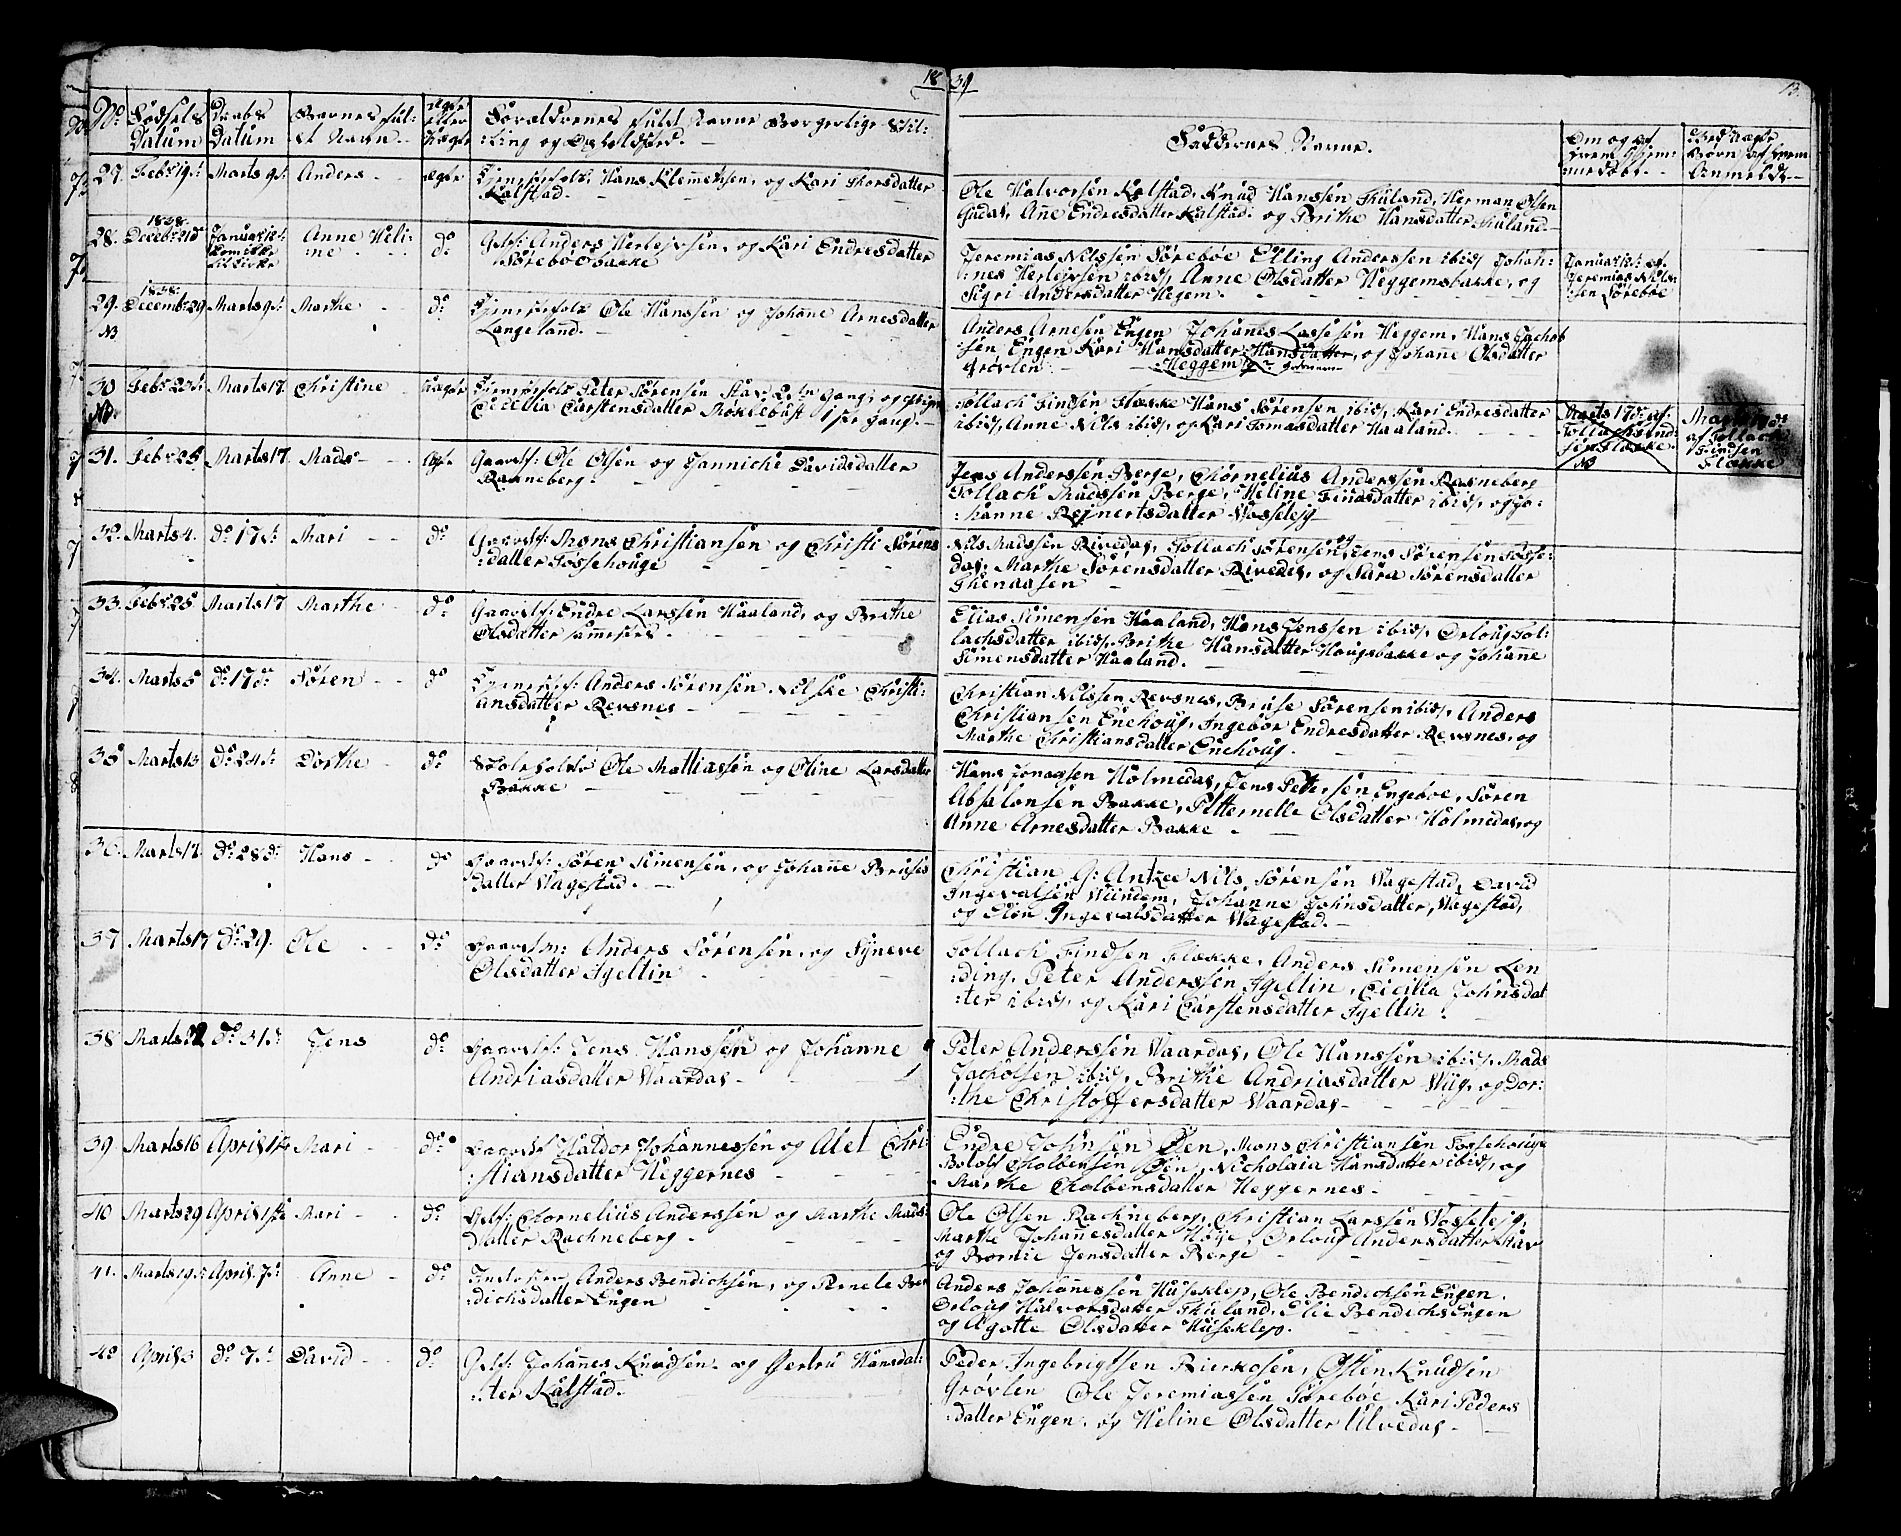 18 39
13.
No. Fødsels Daabs Barnets ful- ægte Forældrenes fulde Navne Borgerlige Stil-
Datum Datum de Navn eller ling og Opholdsted.
uægte
Faddernes Navne.
Om og af
hvem Hjem-
medøbt.
Børn af hvem
Anmeldt
27. Febr 19d: Marts 9d: Anders ægte Hans Klemmetsen, og Kari Thorsdatter
Kalstad.
Ole Halvorsen Kalstad, Knud Hanssen Thuland, Herman Olsen
Anne Endresdatter Kalstad og Brithe Hansdatter Thuland
28. 1838. Decebr 21d Januar Anne Heli- do
ne
Gdf: Anders Herlejvsen, og Kari Endresdatter
Sørebøebakke
Jeremias Nilssen Sørebøe Elling Anderssen ibid, Johan-
nes Herlejvsen ibid, Anne Olsdatter Heggemsbakke, og
Sigri Andersdatter Hegem
Jeremias Nils-
sen Sørebøe
29. 1838. Decembr 29 Marts 9d: Marthe do Ole Hanssen og Johane Arnesdatter
NB
Langeland.
Anders Arnesen Engen Johanes Lassesen Heggem, Hans Jachob
sen Engen Kari Hansdatter Hansdatter, og Johanne Olsdatter
Grøvlen Heggem
30 Febr 20d: Marts 17 Christine uægte Peter Sørensen Stav: 2den gang, og pige
NB.
Cecelia Carstensdatter Røklebust 1ste gang.
Tollach Findsen Flække Hans Sørensen ibid, Kari Endresdatter
ibid, Anne Nils ibid, og Kari Tomasdatter Haaland.
Marts 17d: af
Tollach Find-
sen Flække
NB
Marts 17d:
af Tollach
Findsen
Flække
31. Febr 25 Marts 17 Mads ægte Gaardf: Ole Olsen og Jannicke Davidsdatter
Rakneberg.
Jens Anderssen Berge, Chornelius Anderssen Rakneberg
Tollach Madssen Berge, Heline Jensdatter ibid, og Jo-
hanne Rejnertsdatter Vasselejg
32. Marts 4. do 17d: Mari do Gaardf: Mons Christiansen og Christi Sørens
datter Fossehouge
Nils Madssen Rivedal, Tollach Sørensen og Jens Sørensen Fosse-
dal, Marthe Sørensdatter Rivedal, og Sara Sørensdatter
33. Febr 25 Marts 17 Marthe do Gaardf: Endre Larssen Haaland, og Brithe
Olsdatter sammesteds.
Elias Simensen Haaland, Hans Jenssen ibid, Orloug Tol-
lachsdatter ibid, Brithe Hansdatter Hougsbakke og Johanne
Simensdatter Haaland.
34. Marts 5 do 17d: Søren do Anders Sørensen Nilske Christi-
ansdatter Revsnes
Christian Nilssen Revsnes, Bruse Sørensen ibid, Anders
Christiansen Enehoug, Ingebor Endresdatter Revsnes, og
Marthe Christiansdatter Enehoug.
35 Marts 13 do 24d: Dorthe do Ole Mathiassen og Oline Larsdatter
Bakke
Hans Jonassen Holmedal, Jens Petersen Engeboe, Søren
Absalonsen Bakke, Pitternelle Olsdatter Holmedal, og
Anne Arnesdatter Bakke
36 Marts 12 do 28d: Hans do Gaardf: Søren Simensen, og Johanne Bruses
datter Vagestad.
Christian G: Ankee Nils Sørensen Vagestad, David
Ingevalsen Vundem, Johanne Johnsdatter, Wagestad,
og Elen Ingevalsdatter Wagestad.
37 Marts 17 do 29. Ole do Anders Sørensen, og Syneve
Olsdatter Igeltin
Tollach Findsen Flække, Anders Simensen Len-
ding, Peter Anderssen Igeltin, Cicilia Johnsdat
ter ibid, og Kari Carstensdatter Igeltin.
38 Marts 22 do 31d: Jens do Gaardf: Jens Hanssen og Johanne
Andriasdatter Waardal
Peter Anderssen Waardal, Ole Hanssen ibid, Mads
Jacholsen ibid, Brithe Andriasdatter Wiig, og Dor-
the Christoffersdatter Waardal
39 Marts 16 April 14 Mari do Gaardf Haldor Johannessen og Alet Chri-
stiansdatter Heggernes
Endre Johnsen Øen, Mons Christiansen Fossehouge
Bololf Cholbensen Øen, Nicholaia Hansdatter ibid, og
Marthe Cholbensdatter Heggernes
40 Marts 29 April Mari do Gdf: Chornelius Anderssen og Marthe Mads-
datter Rachneberg.
Ole Olsen Rachneberg, Christian Larssen Wasselejg,
Marthe Johannesdatter Høye Orloug Andersdatter Stav
og Bornie Jensdatter Berge
41. Marts 19d: April 7d: Anne do Anders Bendichsen, og Renete Ben
dichsdatter Engen
Anders Johannessen Huseklep, Ole Bendichsen Engen.
Orloug Halvorsdatter Thuland, Elie Bendichs Engen
og Agotte Olsdatter Huseklep.
42 April 3 do 7d: David do Gdf: Johannes Knudsen og Gertru Hansdat-
ter Kalstad.
Peder Ingebrigtsen Bierkosen, Østen Knudsen
Grøvlen Ole Jeremiassen Sørebøe Kari Peders
datter Engen, og Heline Olsdatter Ulvedal